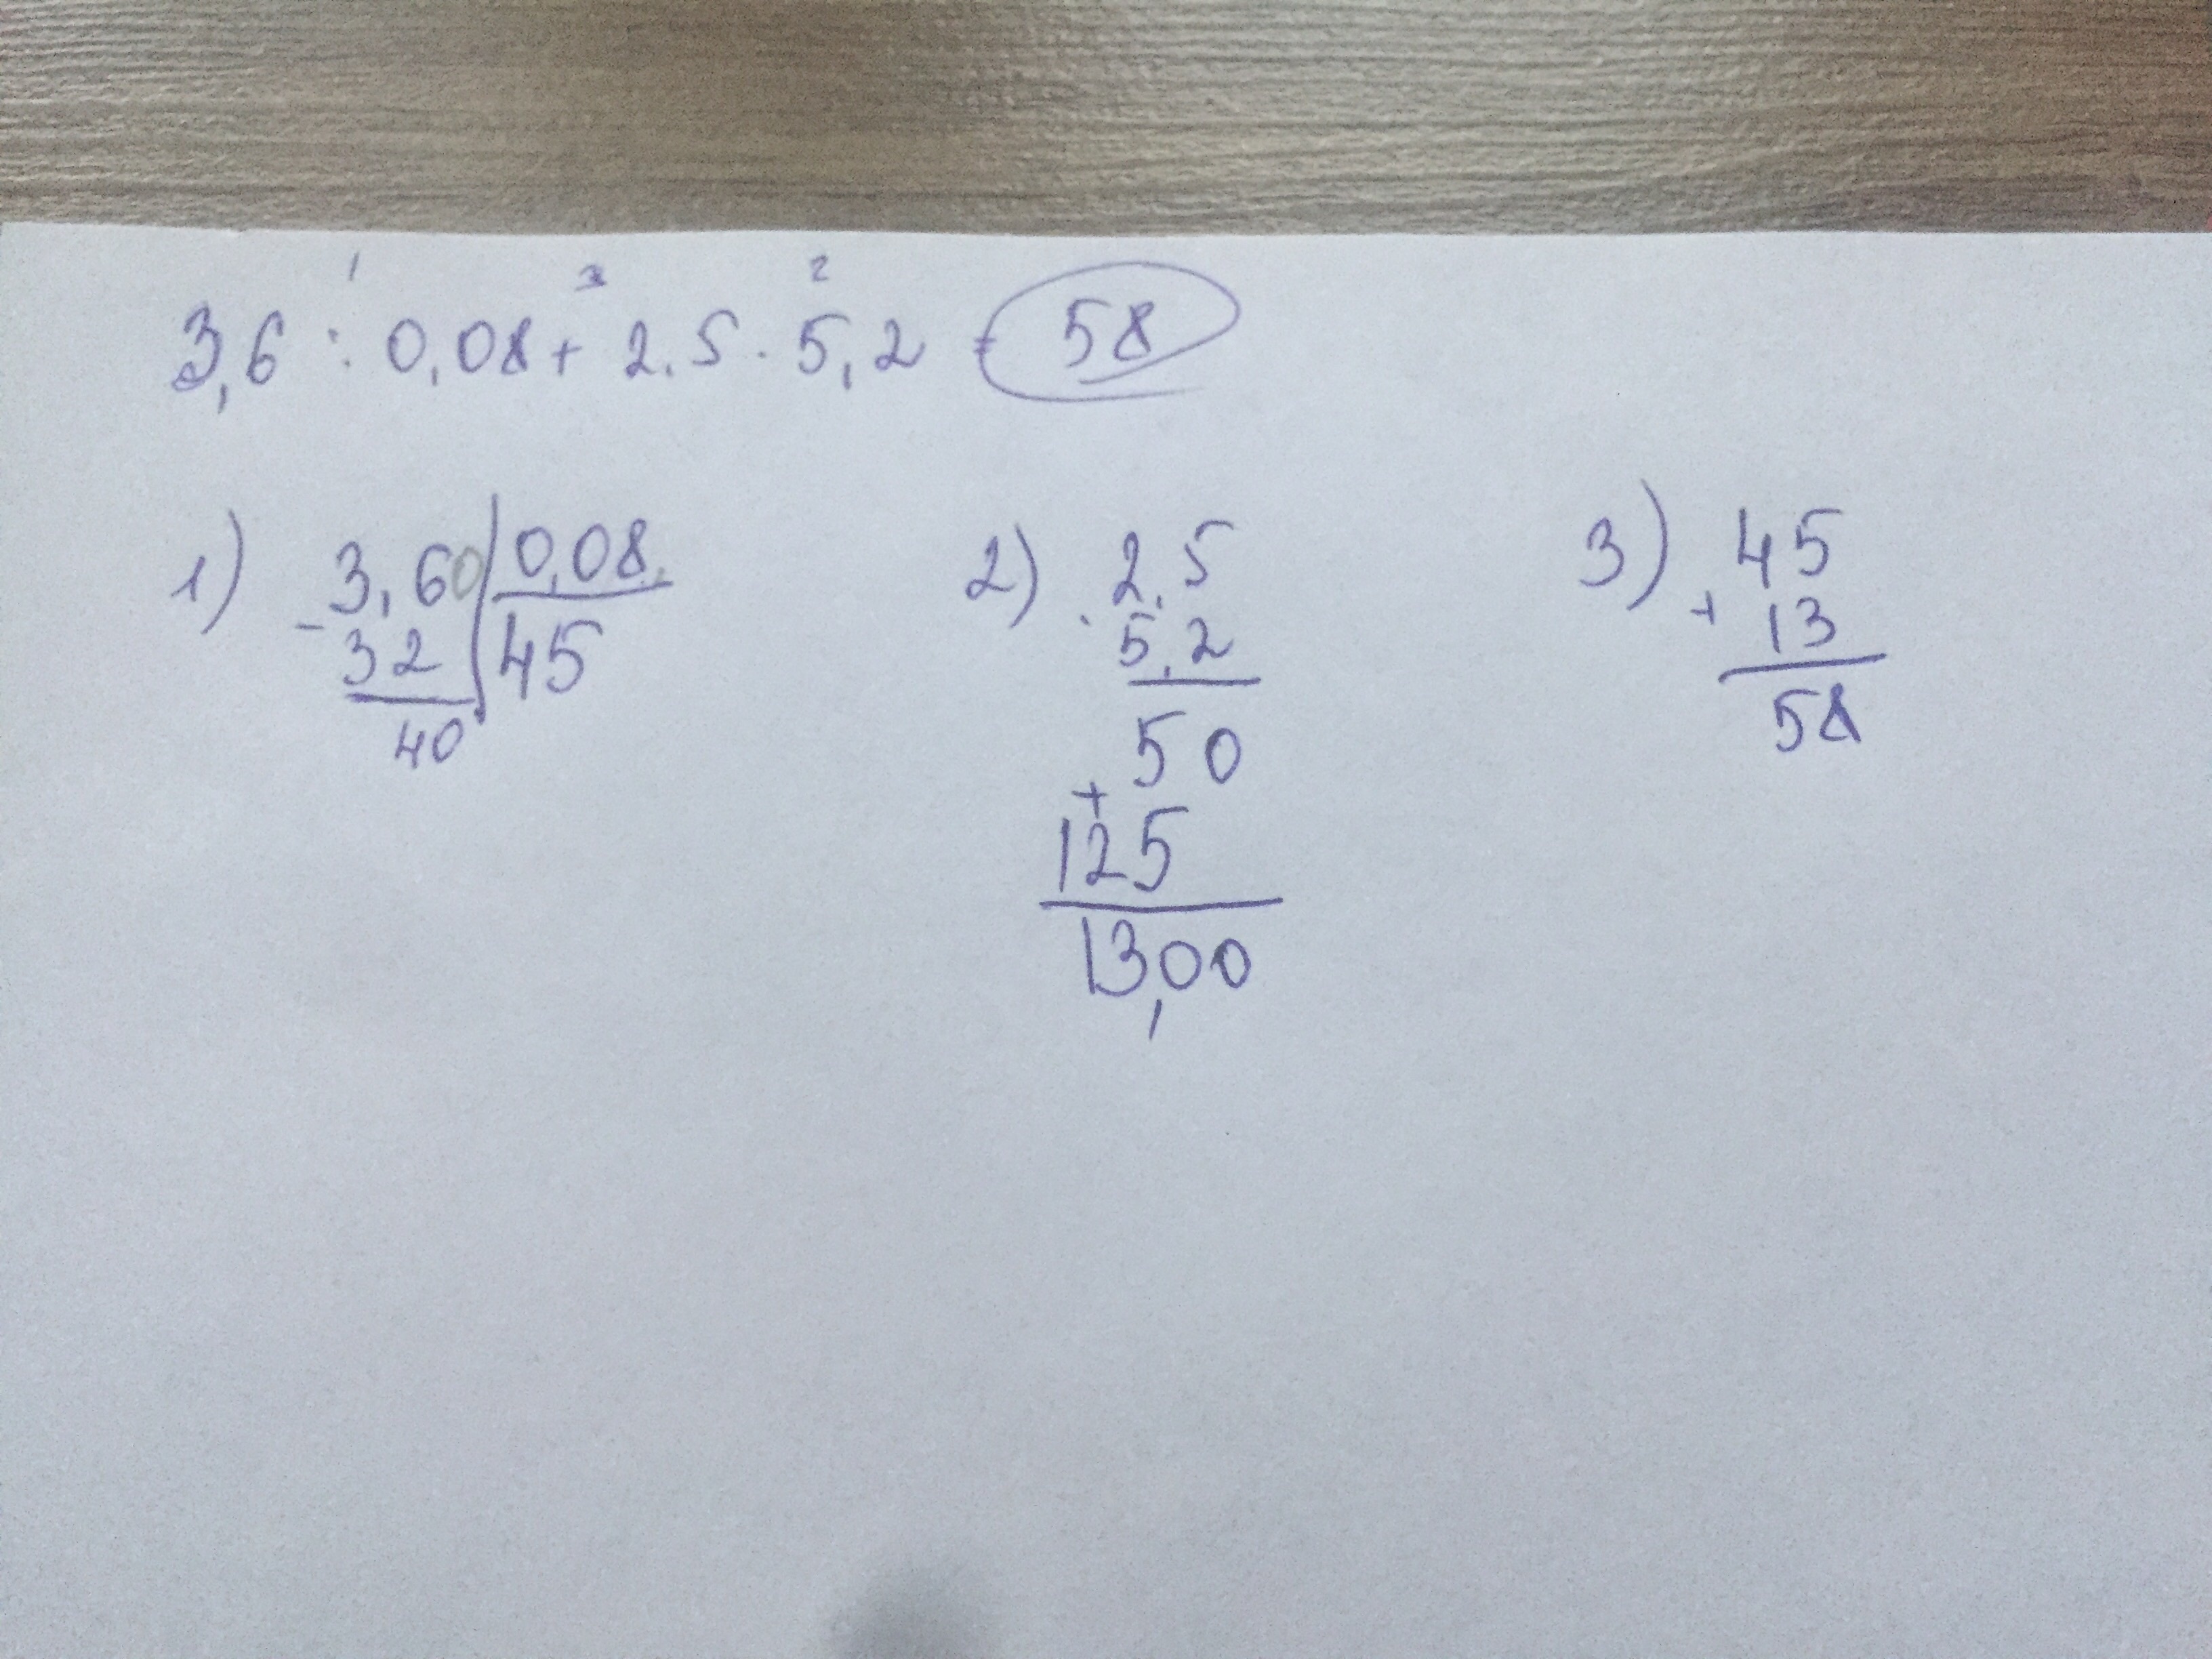 1 3 2
3,6 : 0,08 + 2,5 · 5,2 = 58
1) - 3,60 | 0,08
32 | 45
40
2) · 2,5
5,2
50
+
125
13,00
3) + 45
13
58